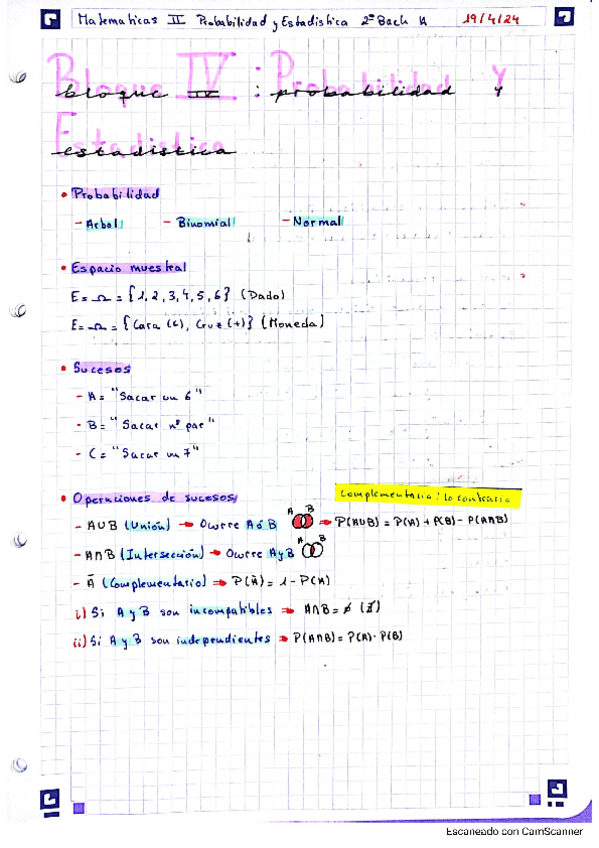 Matematicas II Probabilidad y Estadistica 2º Bach A 19/4/24
Bloque IV : Probabilidad Y
bloque IV : probabilidad y
Estadistica
estadistica
• Probabilidad
- Arbol - Binomial - Normal
• Espacio muestral
E = Ω = {1, 2, 3, 4, 5, 6} (Dado)
E = Ω = {Cara (C), Cruz (+)} (Moneda)
• Sucesos
- A = "Sacar un 6"
- B = "Sacar nº par"
- C = "Sacar un 7"
• Operaciones de sucesos
Complementario: lo contrario
- A∪B (Unión) → Ocurre A ó B A B ⇒ P(A∪B) = P(A) + P(B) - P(A∩B)
- A∩B (Intersección) → Ocurre A y B A B
- Ā (Complementario) ⇒ P(Ā) = 1 - P(A)
i) Si A y B son incompatibles ⇒ A∩B = ∅ (∄)
ii) Si A y B son independientes ⇒ P(A∩B) = P(A) · P(B)
Escaneado con CamScanner